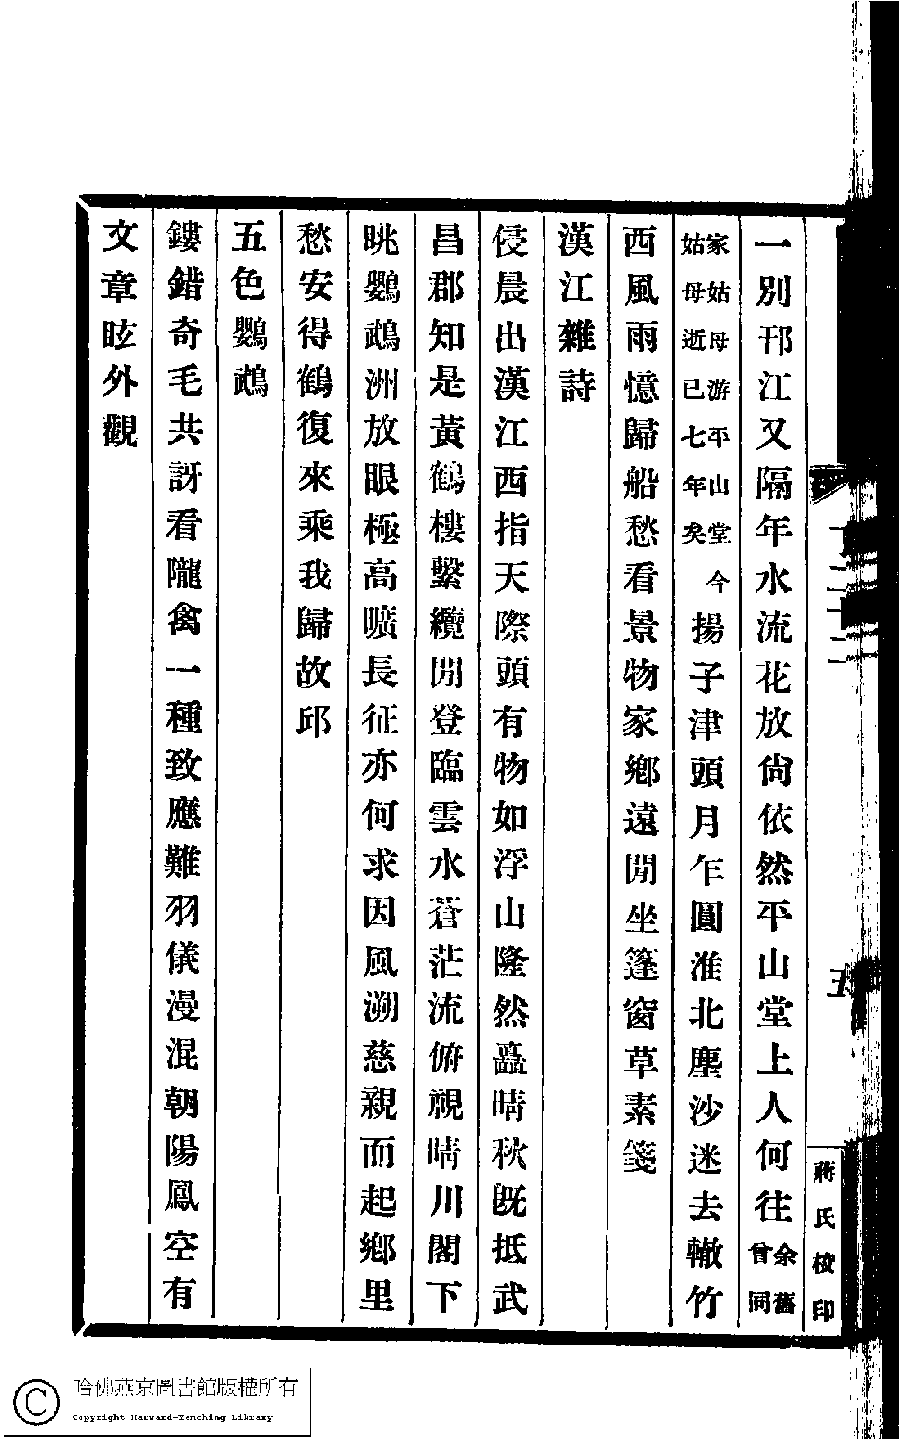 一別邗江又隔年水流花放尙依然平山堂上人何往余舊曾同
家姑母游平山堂今姑母逝已七年矣揚子津頭月乍圓淮北塵沙迷去轍竹
西風雨憶歸船愁看景物家鄉遠閒坐篷窗草素箋
漢江雜詩
侵晨出漢江西指天際頭有物如浮山隆然矗晴秋旣抵武
昌郡知是黃鶴樓繫纜閒登臨雲水蒼茫流俯視晴川閣下
眺鸚鵡洲放眼極高曠長征亦何求因風溯慈親而起鄉里
愁安得鶴復來乘我歸故邱
五色鸚鵡
鏤錯奇毛共訝看隴禽一種致應難羽儀漫混朝陽鳳空有
文章眩外觀
五
蔣氏校印
哈佛燕京圖書館版權所有
Copyright Harvard-Yenching Library